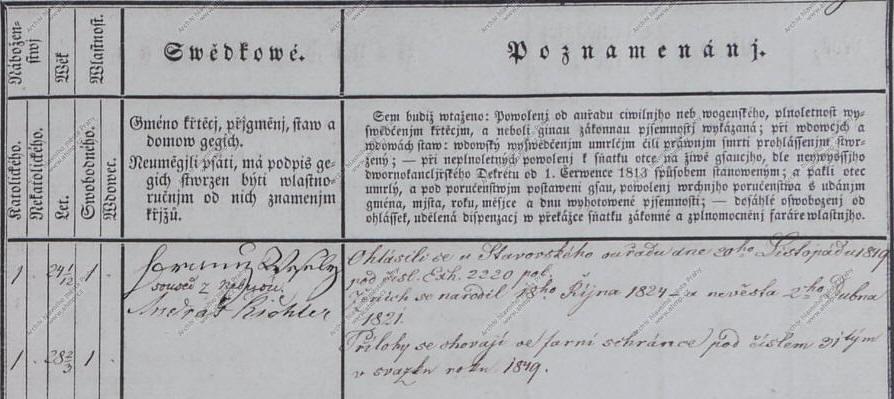 Nábožen-
stwj
Wěk
Wlastnost.
Swědkowé.
Poznamenánj.
Katolického.
Nekatolického.
Let.
Swobodného.
Wdowec.
Gméno křtěcj, přjgměnj, staw a
domow gegich.
Neuměgjli psáti, má podpis ge-
gich stwrzen býti wlastno-
ručnjm od nich znamenjm
křjžů.
Sem budiž wtaženo: Powolenj od auřadu ciwilnjho neb wogenského, plnoletnost wy-
swědčenjm křtěcjm, a neboli ginau zákonnau pjsemnostj wykázaná; při wdowcjch a
wdowách staw: wdowský wyswědčenjm umrlčjm čili práwnjm smrti prohlášenjm stwr-
zený; — při neplnoletných powolenj k sňatku otce na žiwě gsaucjho, dle neywyššjho
dwornokancljřského Dekretu od 1. Čerwence 1813 spůsobem stanoweným; a pakli otec
umrlý, a pod poručenstwjm postaweni gsau, powolenj wrchnjho poručenstwa s udánjm
gména, mjsta, roku, měsjce a dnu wyhotowené pjsemnosti; — dosáhlé oswobozenj od
ohlášek, udělená dispenzacj w překážce sňatku zákonné a zplnomocněnj faráře wlastnjho.
1 . 24 1/12 1 .
Weselý
soused z
Andreas Richter
Ohlásili se u Stavovského ouřadu dne 20ho Listopádu 1849
pod čisl. Exh. 2220 pol.
Ženich se narodil 18ho Října 1824 – a nevěsta 2ho Dubna
1821.
1 . 28 2/3 1 .
Přílohy se chovají ve farní schránce pod číslem 31tým
v svazku roku 1849.